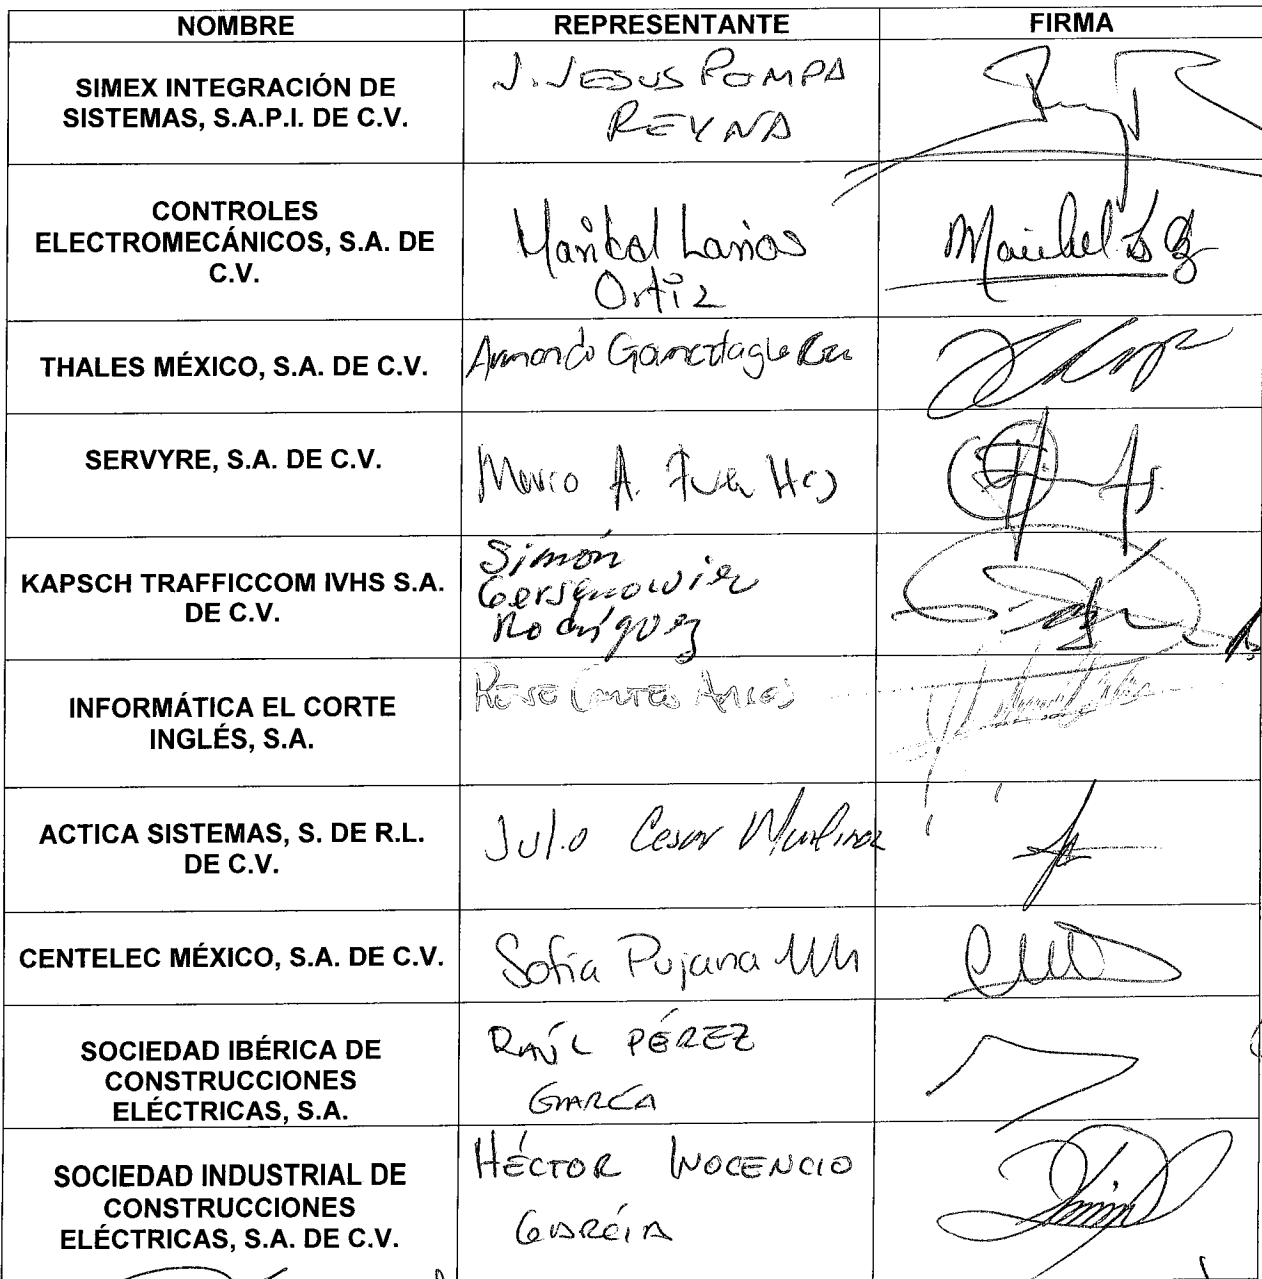 NOMBRE REPRESENTANTE FIRMA
SIMEX INTEGRACIÓN DE
SISTEMAS, S.A.P.I. DE C.V.
J. JESUS POMPA
REYNA
CONTROLES
ELECTROMECÁNICOS, S.A. DE
C.V.
Maribel Lanos
Ortiz
Maribel
THALES MÉXICO, S.A. DE C.V.
Armando
SERVYRE, S.A. DE C.V.
Marco A.
KAPSCH TRAFFICCOM IVHS S.A.
DE C.V.
Simón
Rodríguez
INFORMÁTICA EL CORTE
INGLÉS, S.A.
ACTICA SISTEMAS, S. DE R.L.
DE C.V.
Julio Cesar
CENTELEC MÉXICO, S.A. DE C.V.
Sofia Pujana
SOCIEDAD IBÉRICA DE
CONSTRUCCIONES
ELÉCTRICAS, S.A.
RAÚL PÉREZ
GARCÍA
SOCIEDAD INDUSTRIAL DE
CONSTRUCCIONES
ELÉCTRICAS, S.A. DE C.V.
HÉCTOR INOCENCIO
GARCÍA